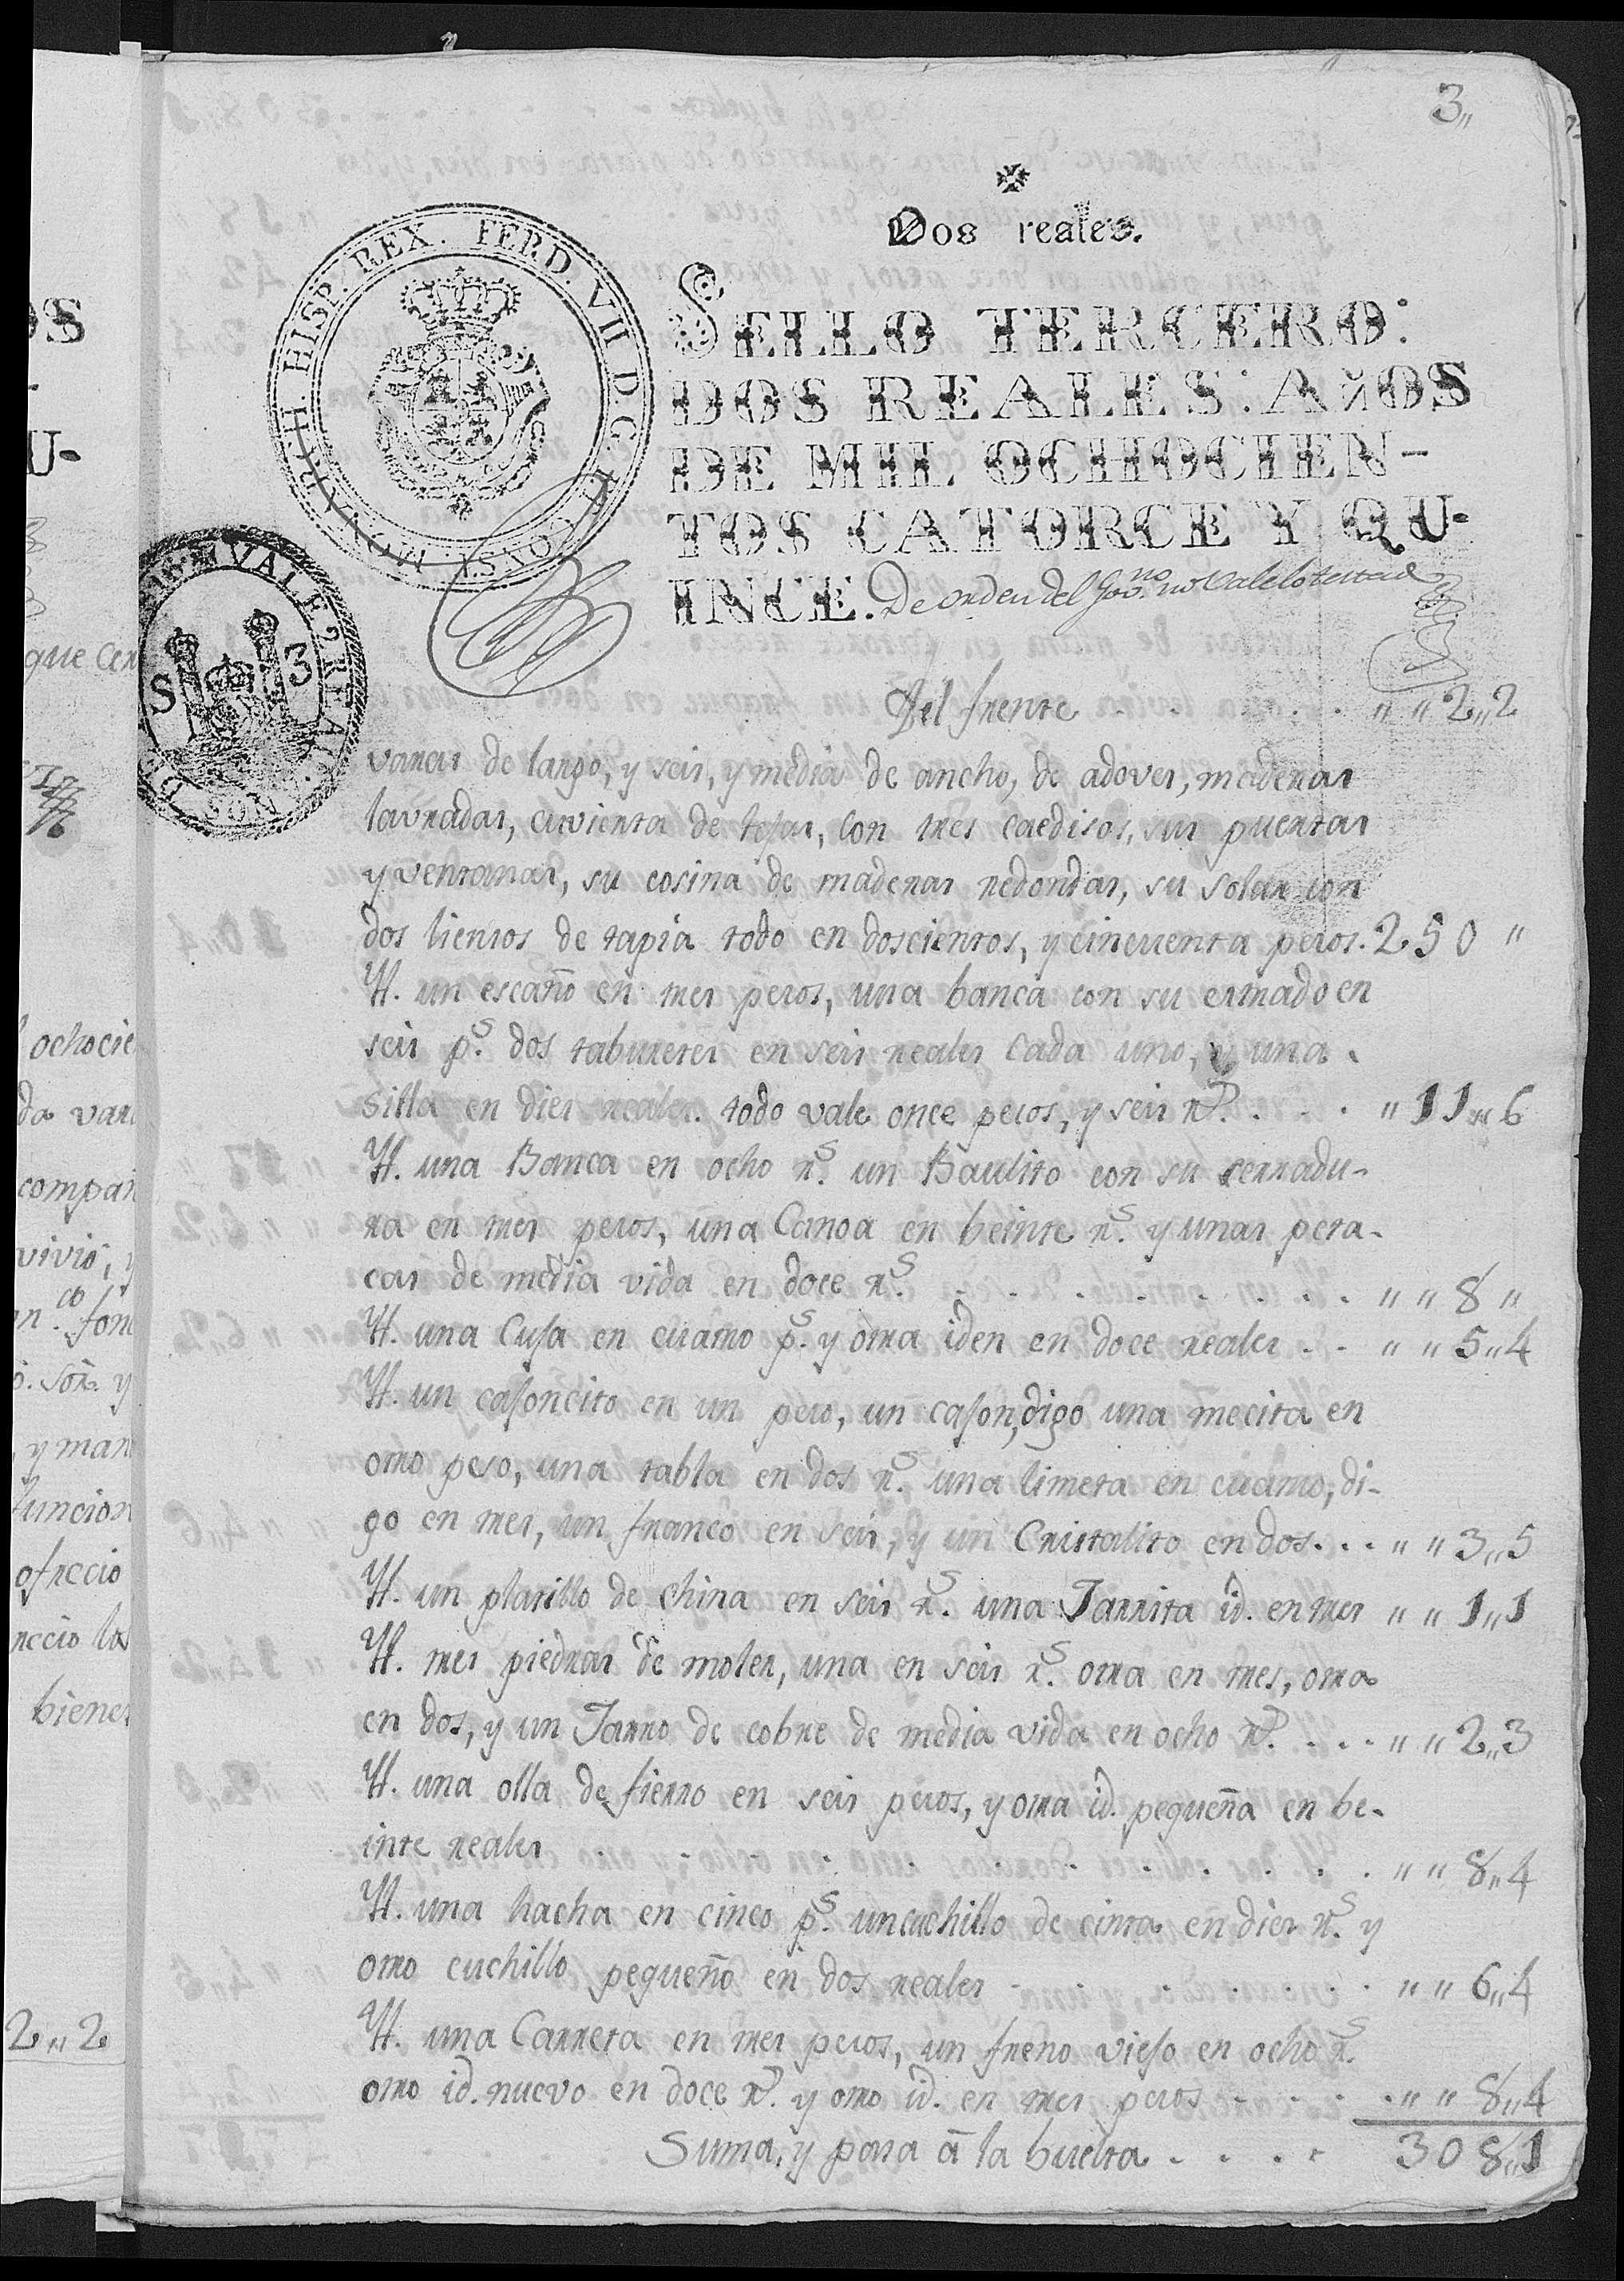 3,,
Dos reales.
HISP. REX. FERD. VII D. G.
SELLO TERCERO:
DOS REALES: AÑOS
DE MIL OCHOCIEN-
TOS CATORCE Y QU-
INCE. De orden del Gov.no no vale lo testad
VALE 2 REAL
S 3
Del frente . . . . . . . " " 2,,2
varas de largo, y seis, y media de ancho, de adoves, maderas
lavradas, cuvierta de tejas, con tres caedisos, sus puertas
y ventanas, su cosina de maderas redondas, su solar con
dos liensos de tapia todo en doscientos, y cincuenta pesos. 250 "
Yt. un escaño en tres pesos, una banca con su armado en
seis p.s dos taburetes en seis reales cada uno, y una
silla en dies reales. todo vale once pesos, y seis r.s . . . " 11,,6
Yt. una Banca en ocho r.s un Baulito con su cerradu-
ra en tres pesos, una Canoa en beinte r.s y unas peta-
cas de media vida en doce r.s . . . . . . . . " " 8 "
Yt. una Cuja en cuatro p.s y otra iden en doce reales . . " " 5,,4
Yt. un cajoncito en un peso, un cajon, digo una mecita en
otro peso, una tabla en dos r.s una limeta en cuatro, di-
go en tres, un franco en seis, y un Cristalito en dos. . . " " 3,,5
Yt. un platillo de China en seis r.s una Jarrita id. en tres " " 1,,1
Yt. tres piedras de moler, una en seis r.s otra en tres, otra
en dos, y un Jarro de cobre de media vida en ocho r.s . . . . " " 2,,3
Yt. una olla de fierro en seis pesos, y otra id. pequeña en be-
inte reales . . . . . . . . . . " " 8,,4
Yt. una hacha en cinco p.s un cuchillo de cinta en dies r.s y
otro cuchillo pequeño en dos reales . . . . . . . " " 6,,4
Yt. una Carreta en tres pesos, un freno viejo en ocho r.s
otro id. nuevo en doce r.s y otro id. en tres pesos . . . . . " " 8,,4
Suma, y pasa â la buelta . . . . 308,,1
OS
U-
que cer
ochocie
da vara
compañ
vivió, y
y man
funcion
ofrecio
recio los
bienes
2,,2